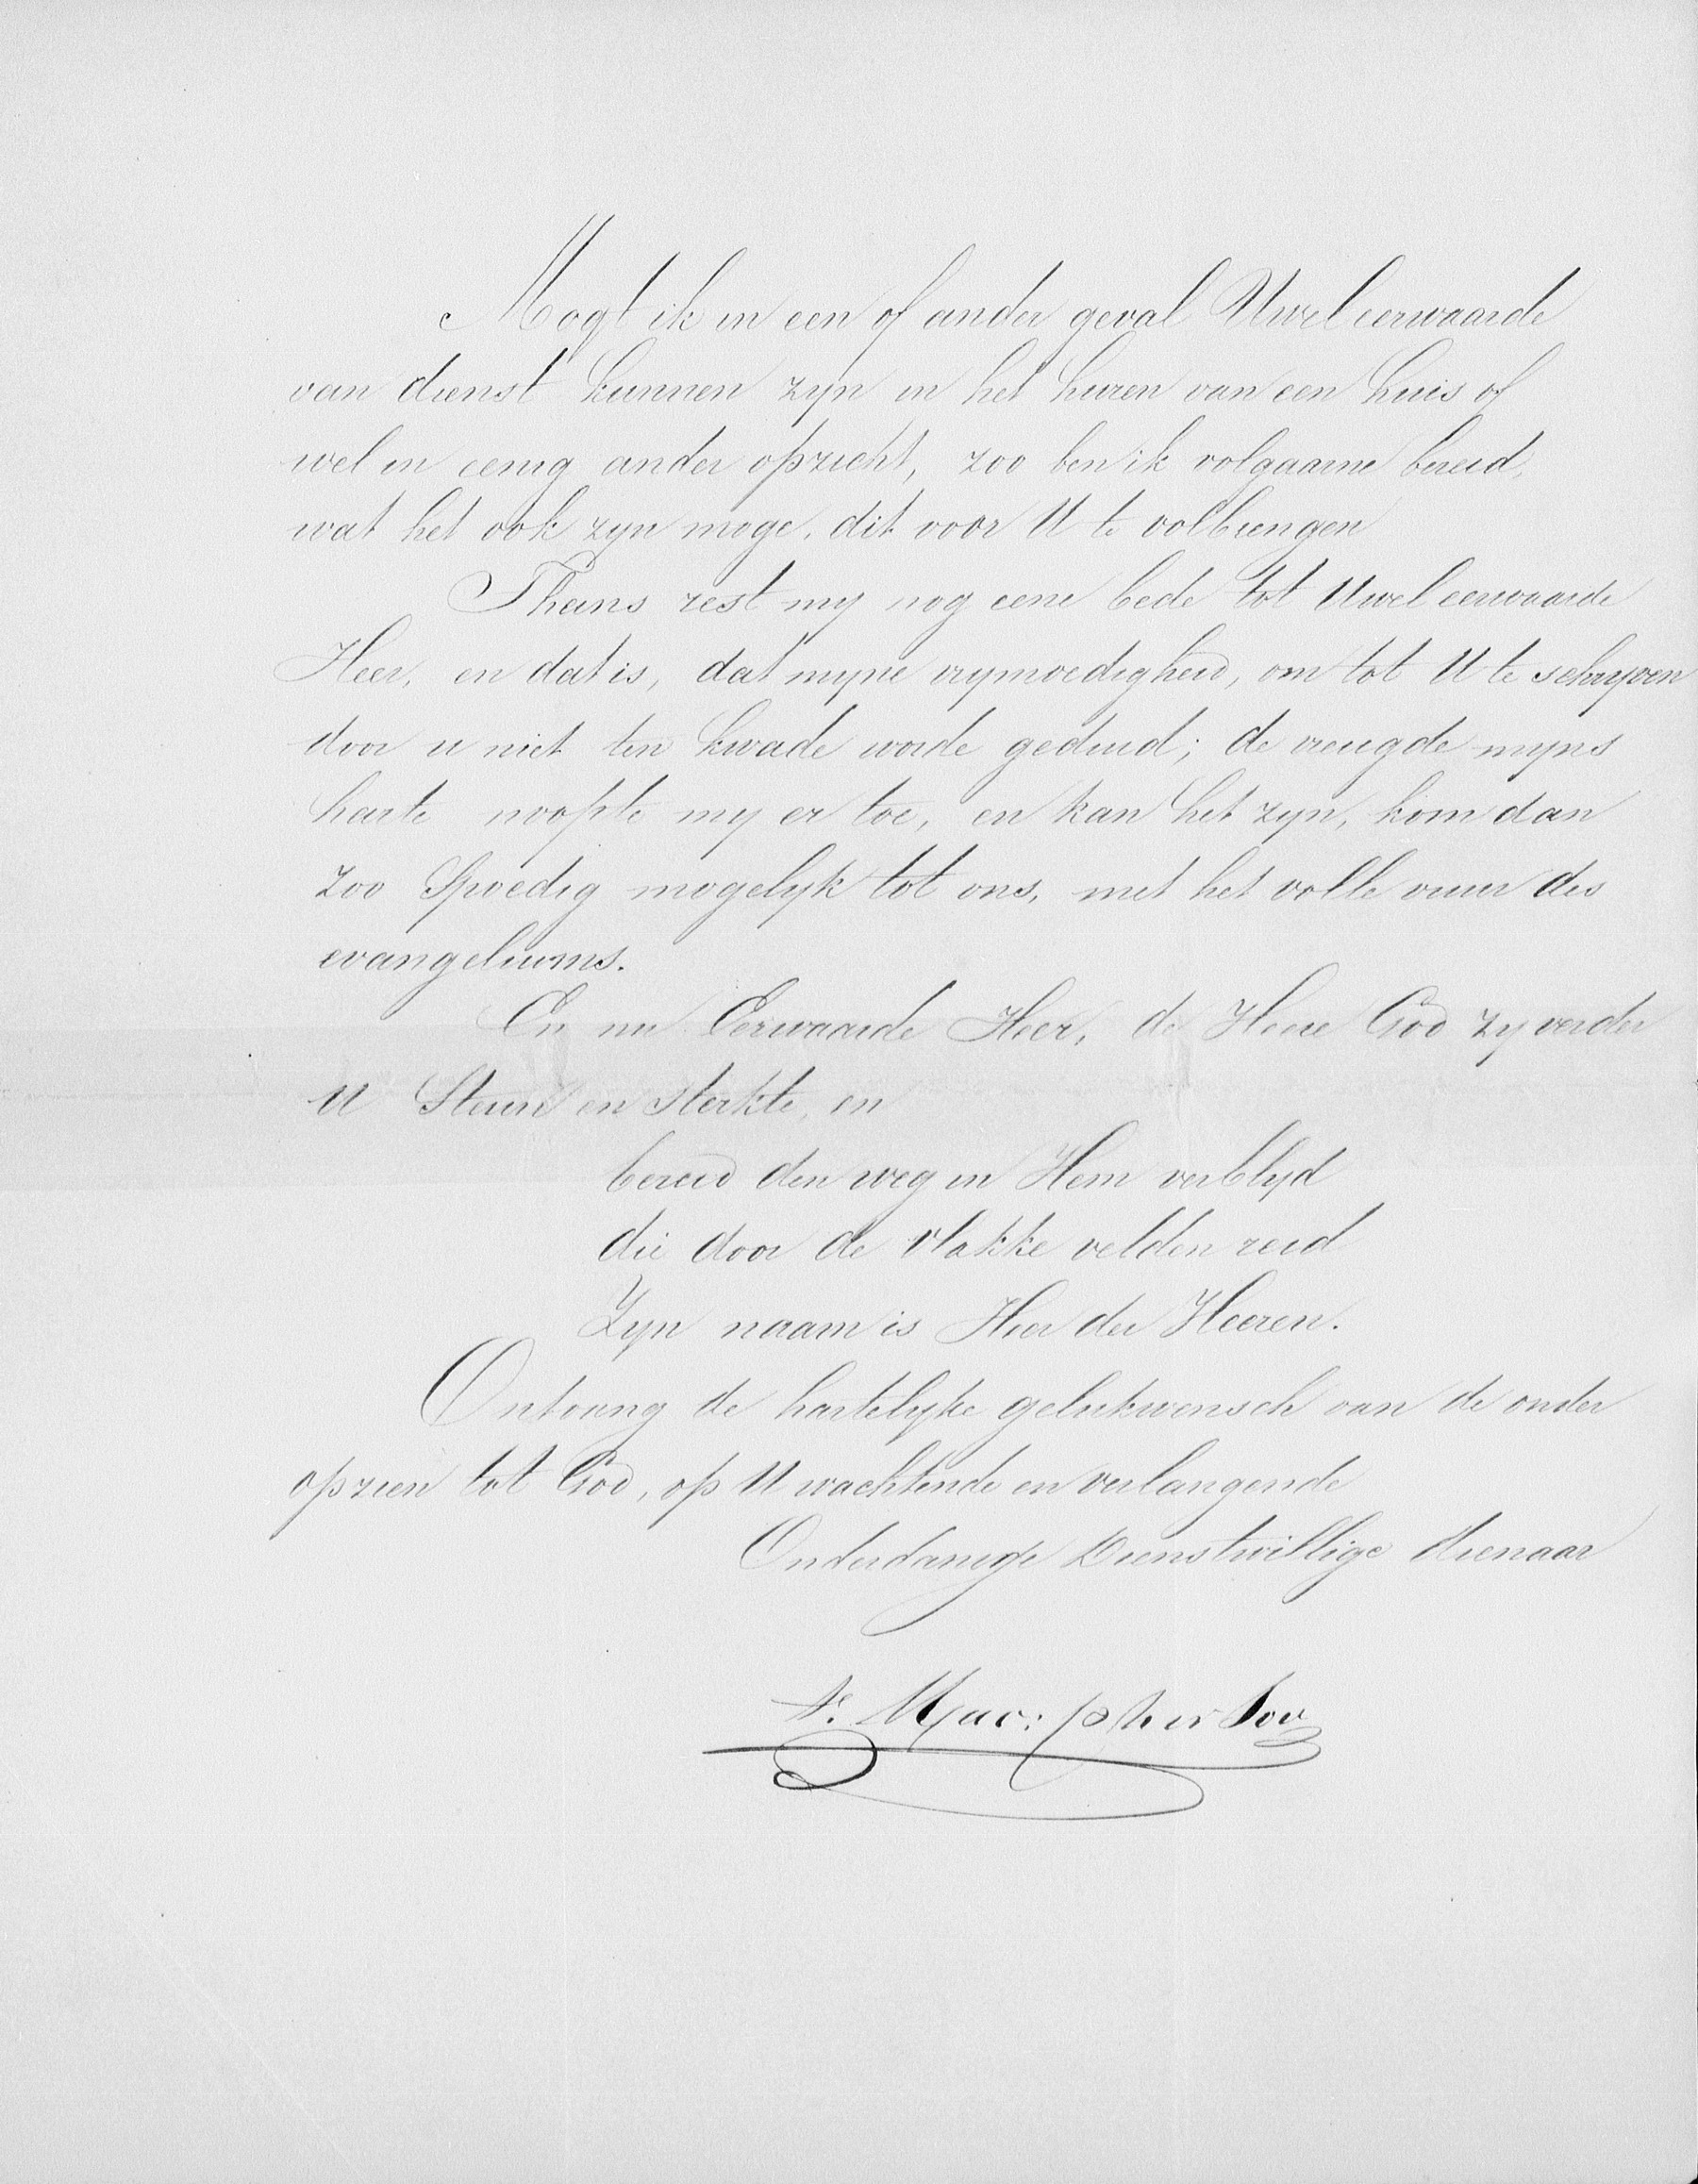 Mogt ik in een of ander geval Uwel eerwaarde
van dienst kunnen zyn in het huren van een huis of
wel in eenig ander opzicht, zoo ben ik volgaarne bereid,
wat het ook zyn moge, dit voor U te volbrengen
Thans rest my nog eene bede tot Uwel eerwaarde
Heer, en dat is, dat myne vrymoedigheid, om tot U te schryven
door u niet ten kwade worde geduid; de vreugde myns
harte noopte my er toe, en kan het zyn, kom dan
zoo spoedig mogelyk tot ons, met het volle vuur des
evangeliums.
En nu Eerwaarde Heer, de Heere God zy verder
U Steun en sterkte, en
bereid den weg in Hem verblyd
die door de vlakke velden reid
Zyn naam is Heer der Heeren.
Ontvang de hartelyke gelukwensch van de onder
opzien tot God, op U wachtende en verlangende
Onderdanige Dienstwillige dienaar
Mac: pherson